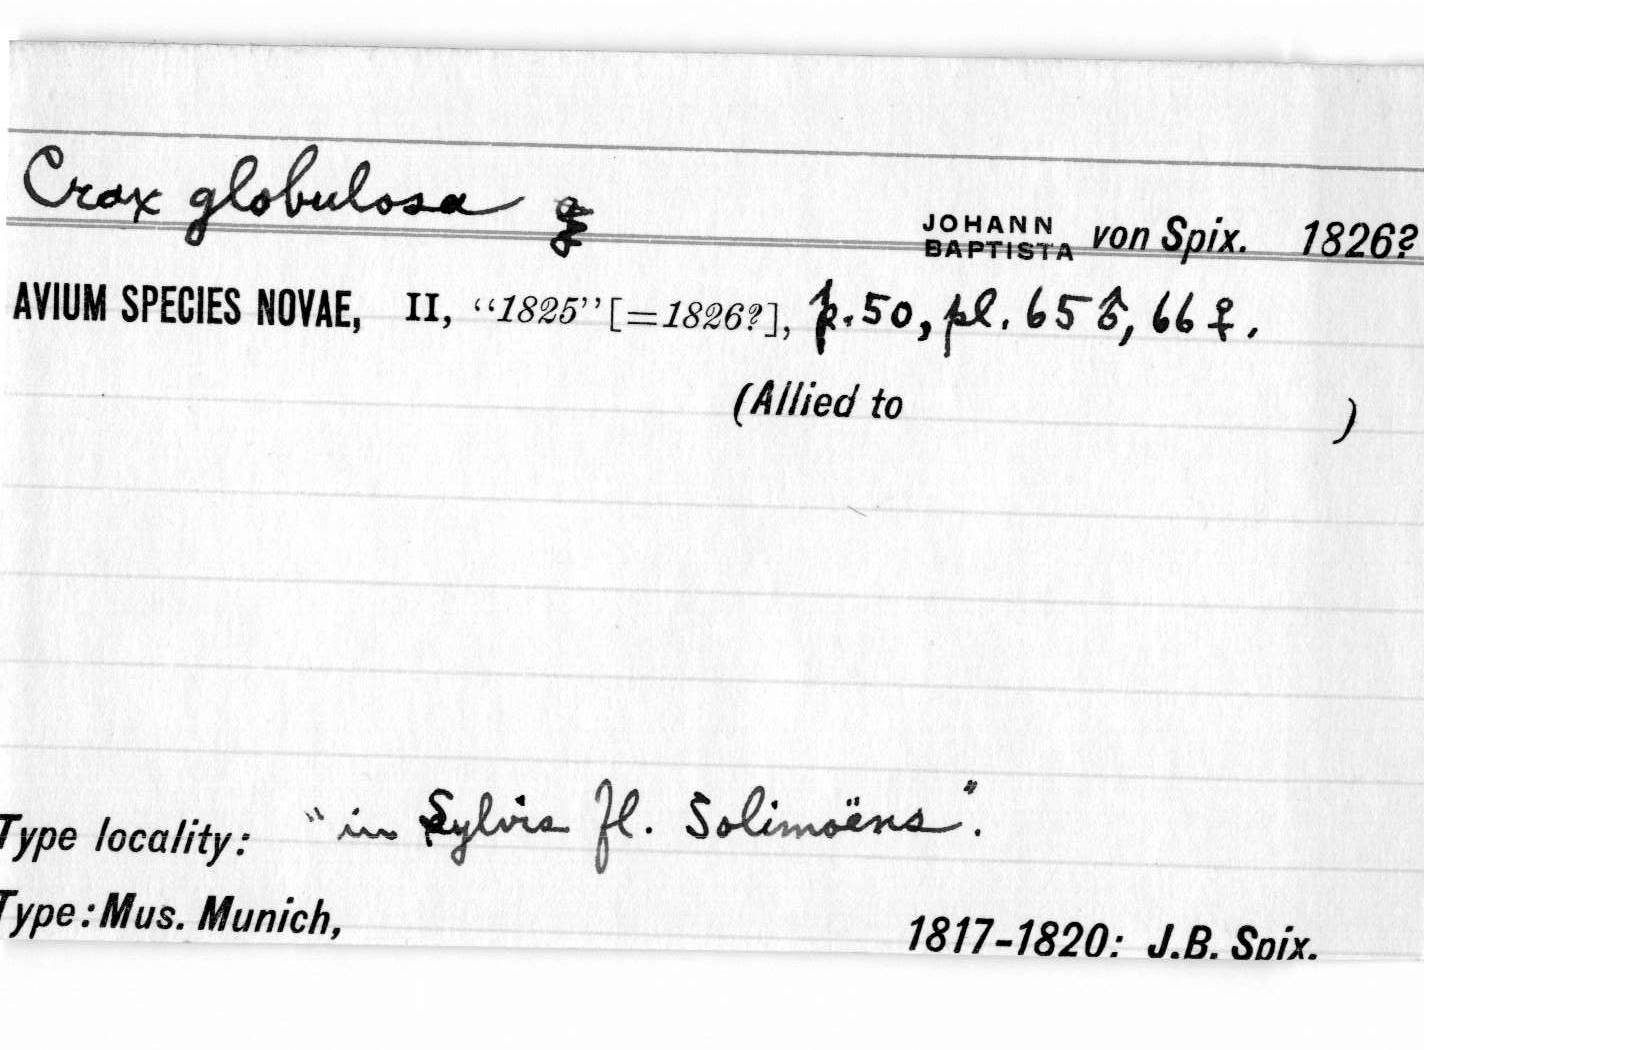 Crax globulosa
JOHANN BAPTISTA von Spix. 1826?
AVIUM SPECIES NOVAE, II, “1825” [=1826?], p. 50, pl. 65 ♂, 66 ♀.
(Allied to )
Type locality: "in Sylvis fl. Solimoëns".
Type: Mus. Munich, 1817-1820: J.B. Spix.